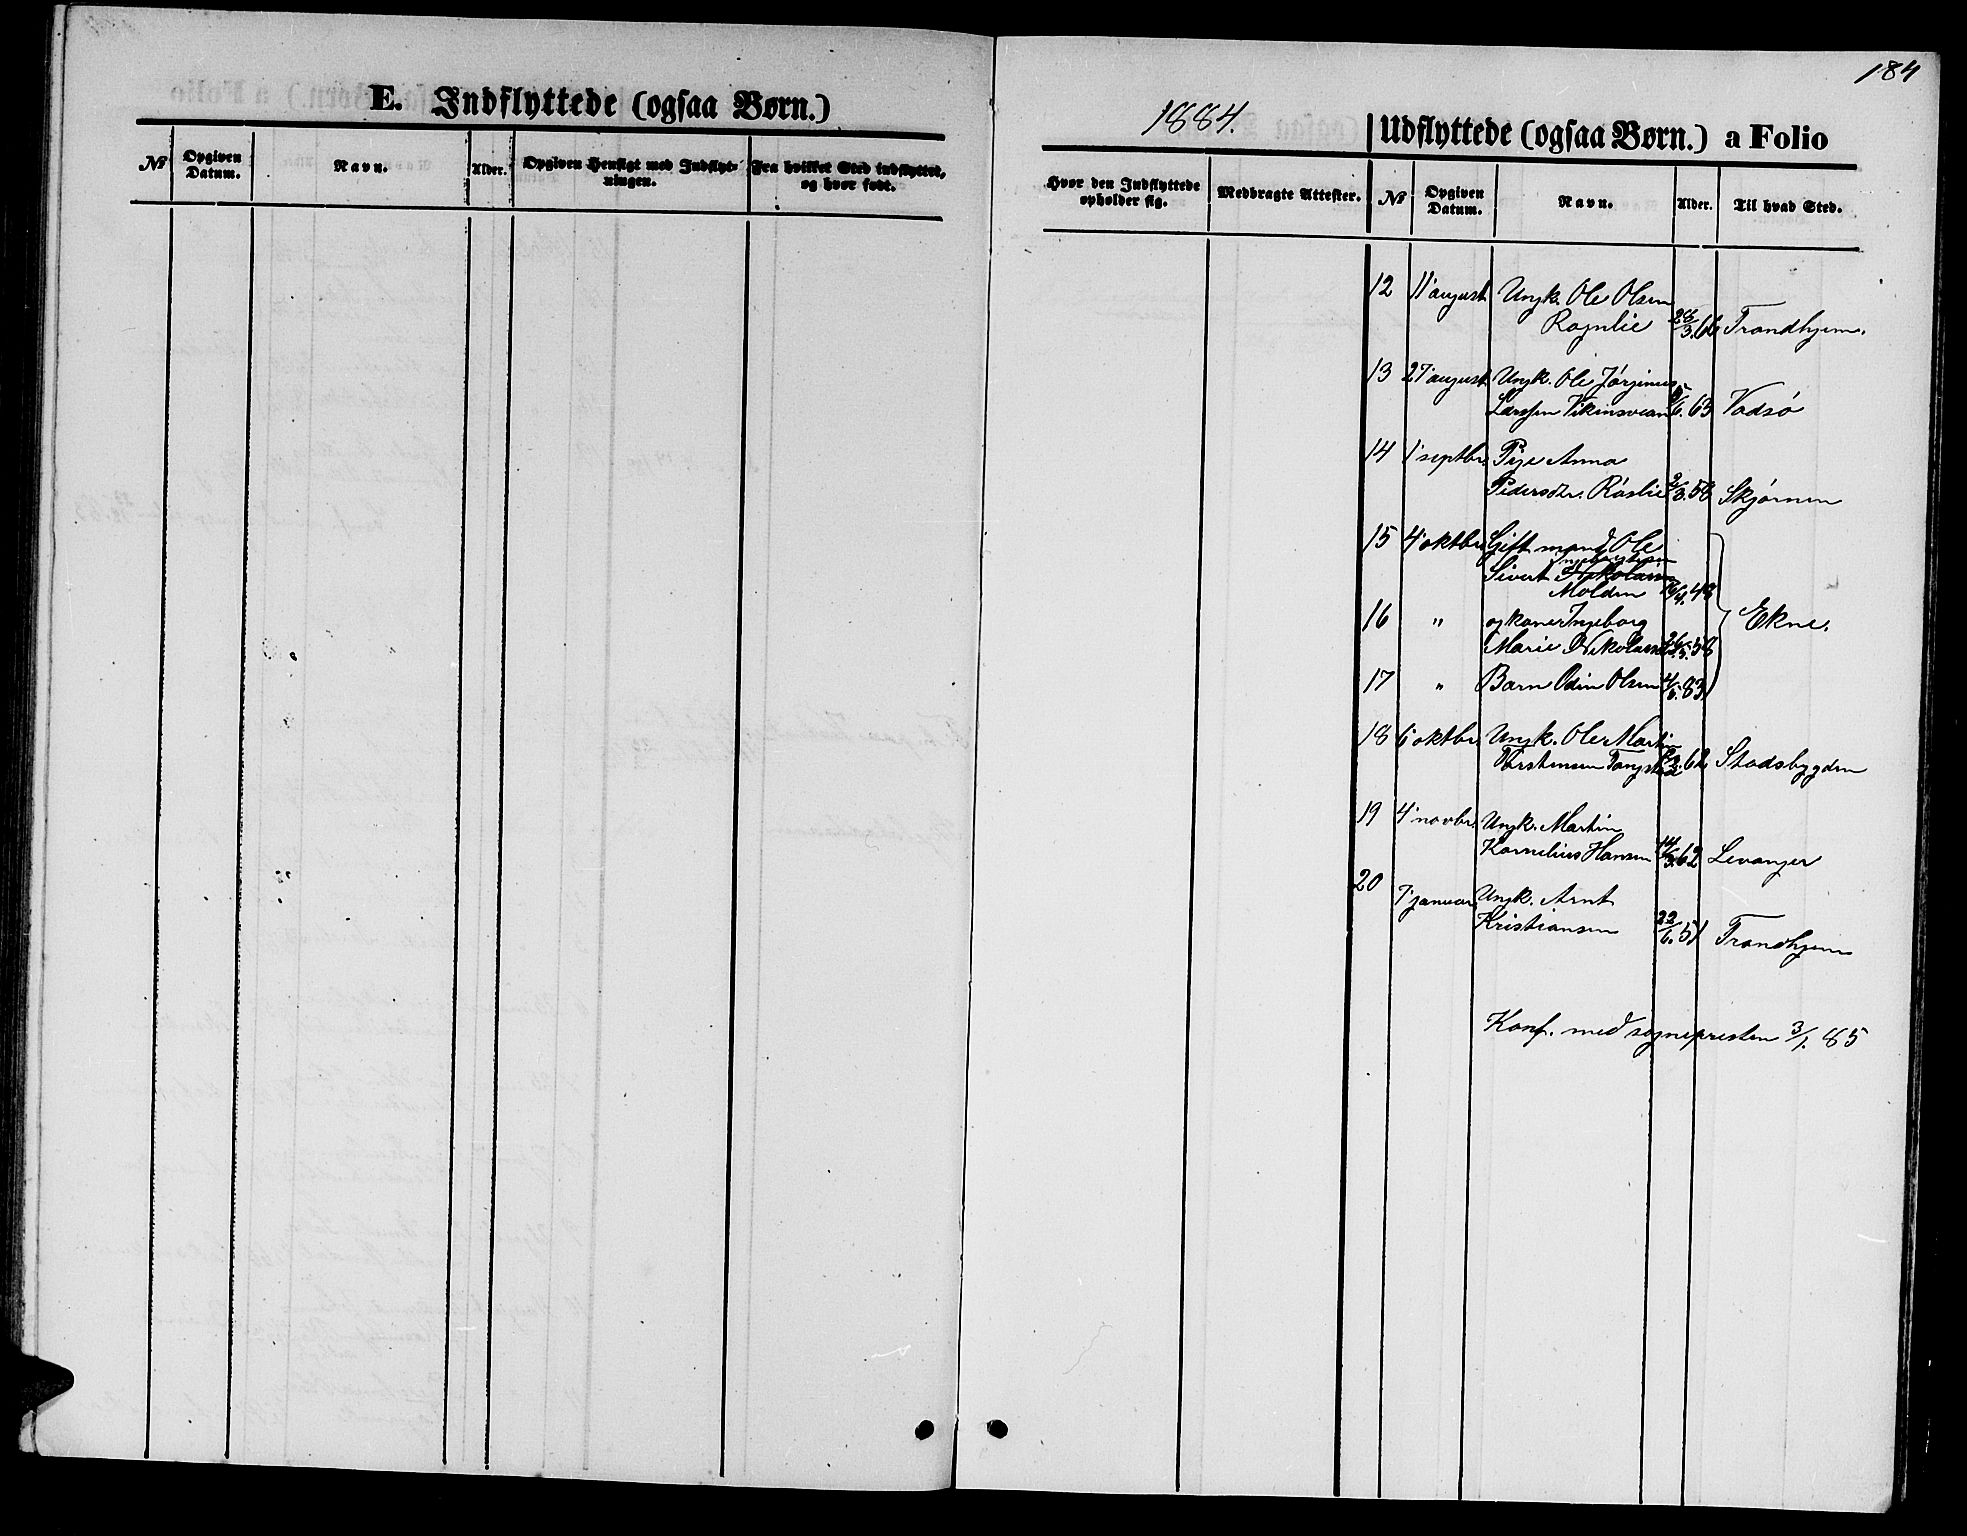 184
E. Indflyttede (ogsaa Børn.)
1884.
Udflyttede (ogsaa Børn.) a Folio
No
Opgiven Datum.
Navn.
Alder.
Opgiven Hensigt med Indflyt-
ningen.
Fra hvilket Sted indflyttet,
og hvor født.
Hvor den Indflyttede
opholder sig.
Medbragte Attester.
No
Opgiven Datum.
Navn.
Alder.
Til hvad Sted.
12 11' august Ungk. Ole Olsen
Rognlie 28/3.66 Trondhjem.
13 27' august Ungk. Ole Jørginus
Larssen Vikinsvean /6.63 Vadsø
14 1' septbr. Pige Anna
Pedersdtr. Røslie 2/3.58 Skjørnen
15 4' oktbr. Gift mand Ole
Sivert Nikolaisen
Molden 16/4.48
16 " og kone Ingeborg
Marie Nikolaisdtr. 26/5.58 Ekne.
17 " Barn Odin Olsen 4/5.83
18 6' oktbr. Ungk. Ole Martin
Torstensen Tangstad /2.62 Stadsbygden
19 4' novbr. Ungk. Martin
Kornelius Hansen 14/3.62 Levanger
20 7' januar Ungk. Arnt
Kristiansen 22/6.51 Trondhjem
Konf. med sognepresten 3/1. 85